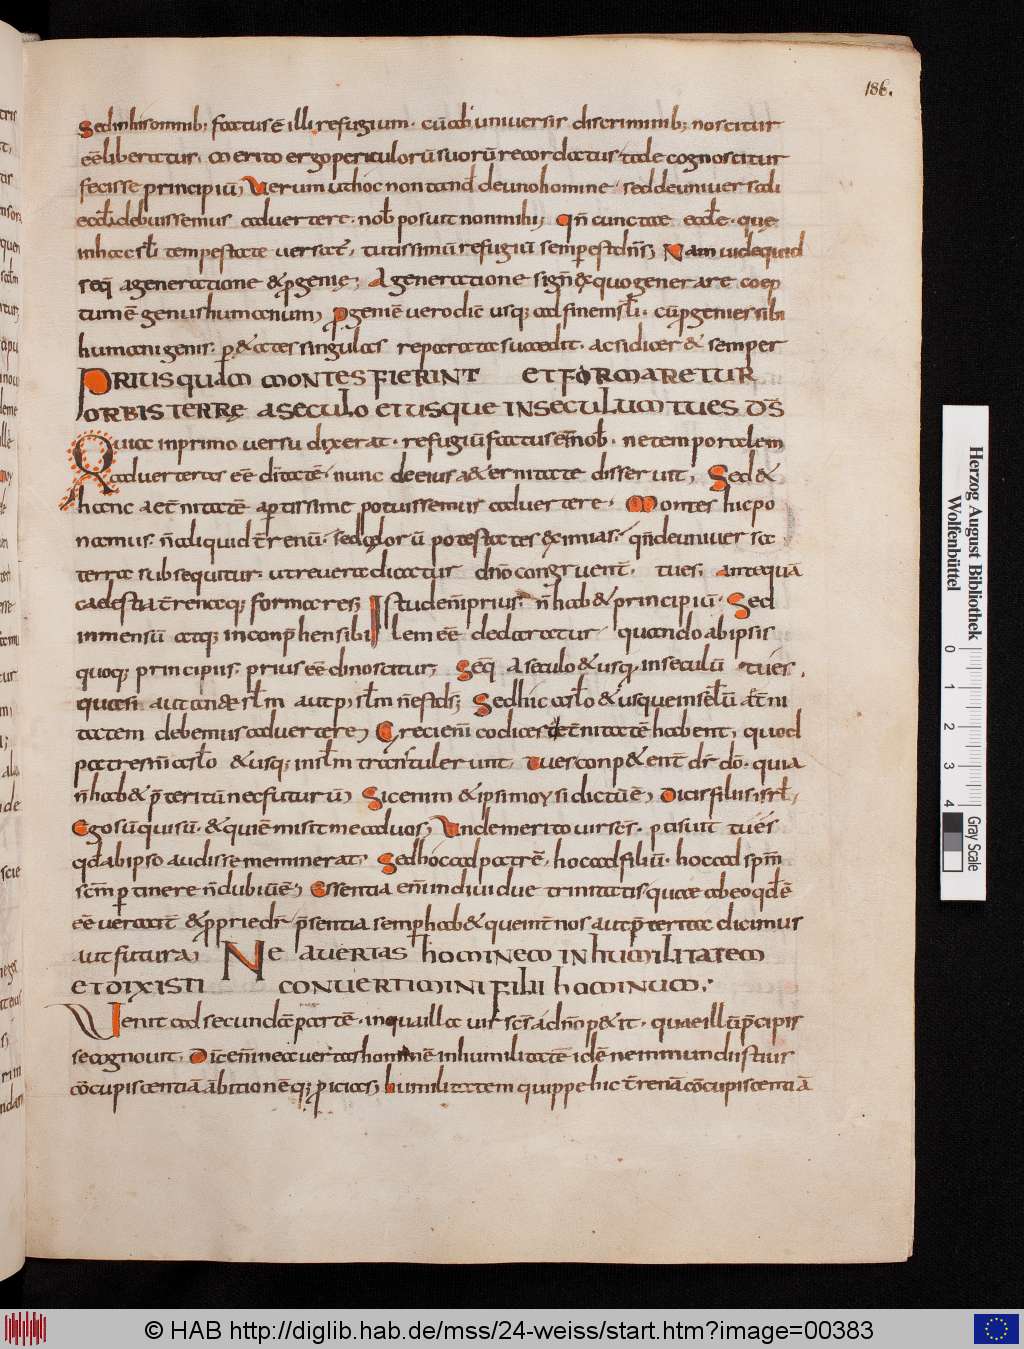 186.
Sed in his omnib; factus ē illi refugium. cū ab universis discriminib; noscitur
eē liberatus, merito ergo periculorū suorū recordatus tade cognoscitur
fecisse principiū; Verum ut hoc non tand de uno homine. sed de universali
eccla debuissemus advertere. nob posuit non mihi; In cunctae eccle. que
in hac scli tempestate versat, tutissimū refugiū semp est dns; Nam vide quid
seq a generatione & pgenie; A generatione sign & quo generare coep
tum ē genus humanum; pgeniē vero dic usq; ad finem scli. cū pgenies sibi
humani generis. p &ates singulas reparata succedit. ac si dicer& semper
PRIUS QUAM MONTES FIERINT ET FORMARETUR
ORBIS TERRE A SECULO ET USQUE IN SECULUM TU ES DS
Quia in primo versu dixerat. refugiū factus es nob. ne temporalem
adverteres eē ditatē. nunc de eius a&ernitate disserit; Sed &
hanc aetnitatē aptissime potuissemus advertere. Montes hic po
namus. n aliquid trenū. sed
terrae subsequitur. ut reverta dicatur dno congruent. tu es, antequā
caelestia trenaq; formares; Istud enī prius. n hab& principiū. Sed
inmensū atq; inconphensibilem eē declaratur quando ab ipsis
quoq; principiis. prius eē dinoscitur; Seq A seculo & usq; in seculū tu es.
quasi aut ande sclm aut p sclm n est ds; Sed hic a sclo & usque in sclū aetni
tatem debemus advertere; Greci enī codices aetnitatē habent, quod
patres nri a sclo & usq; in sclm transtulerunt, Tu es conp&ent dr do. quia
n hab& pteritū nec futurū; Sic enim & ipsi moysi dictū ē; Dicis filiis isrl,
Ego sū qui sū. & qui ē misit me ad vos; Unde merito vir scs. posuit tu es
qd ab ipso audisse meminerat; Sed hoc ad patrē, hoc ad filiū. hoc ad spm
scm ptinere n dubiū ē; Essentia enī individue trinitatis quae ab eo qd ē
eē veraat & pprie dr psentia semp hab& que nt nos aut pterita dicimus
aut futura; NE AVERTAS HOMINEM IN HUMILITATEM
ET DIXISTI CONVERTIMINI FILII HOMINUM;
Venit ad secundā partē. in qua illa vir scs a dno p&it. quae illū pcipis
se cognovit, Dic enī ne avertas hominē in humilitatē idē ne in mundi istius
cōcupiscentiā ābitionēq; picias; humilitatem quippe hic trenā cōcupiscentiā
Herzog August Bibliothek
Wolfenbüttel
0 1 2 3 4
Gray Scale
© HAB http://diglib.hab.de/mss/24-weiss/start.htm?image=00383